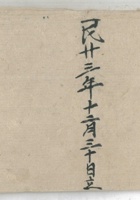 民廿三年十二月三十日立